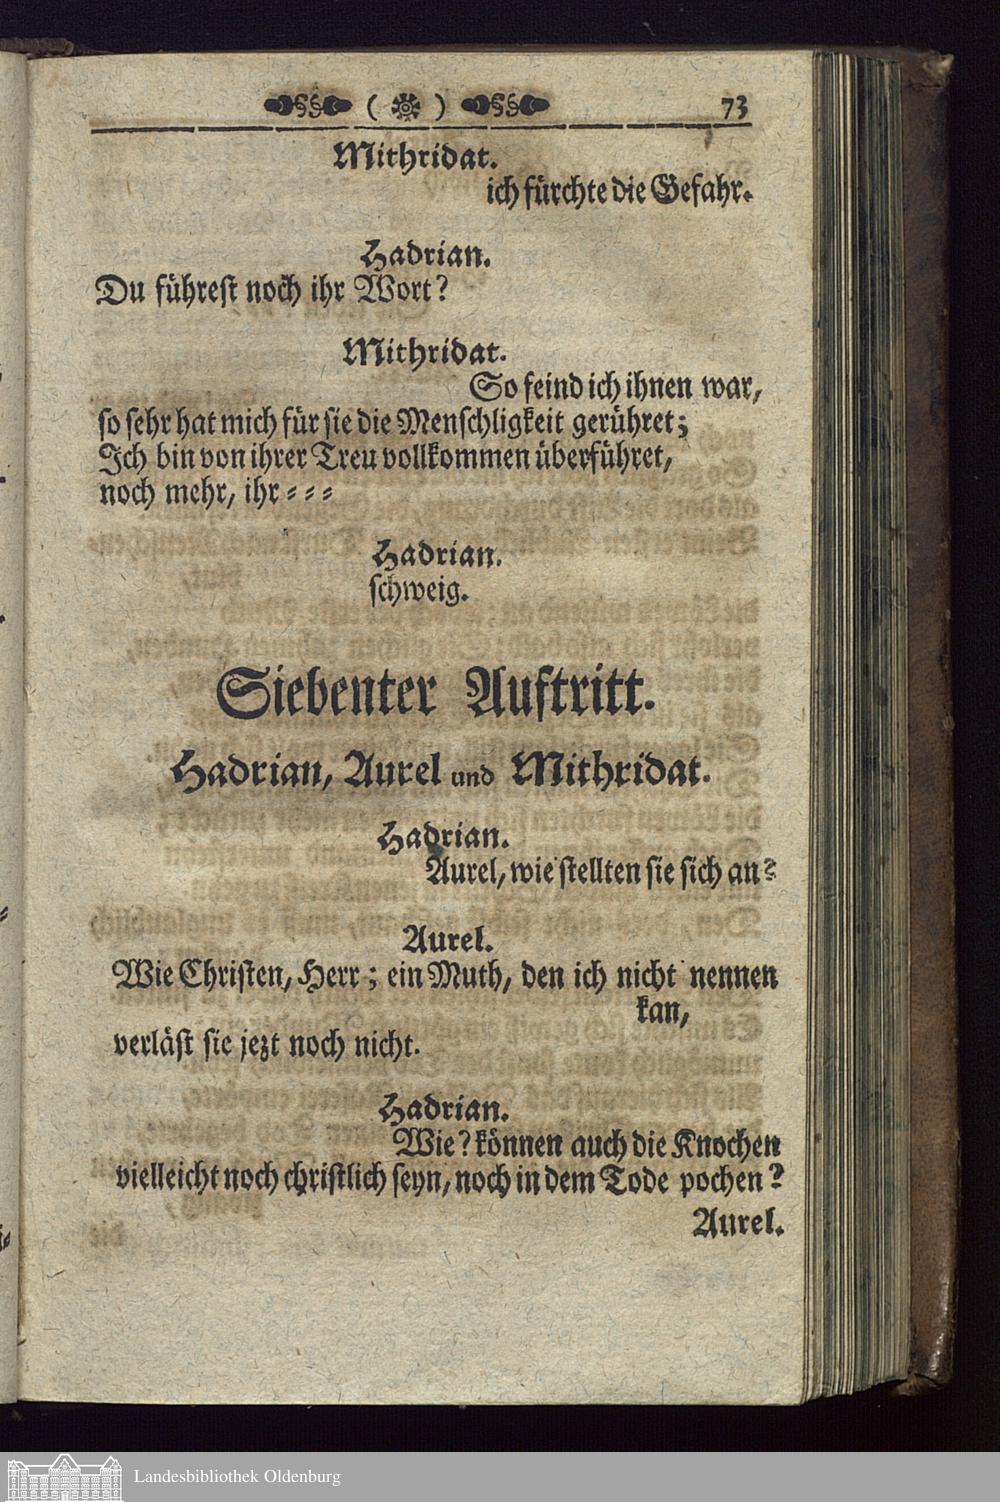 ( ) 73
Mithridat.
ich fürchte die Gefahr.
Hadrian.
Du führest noch ihr Wort?
Mithridat.
So feind ich ihnen war,
so sehr hat mich für sie die Menschligkeit gerühret;
Ich bin von ihrer Treu vollkommen überführet,
noch mehr, ihr - - -
Hadrian.
schweig.
Siebenter Auftritt.
Hadrian, Aurel und Mithridat.
Hadrian.
Aurel, wie stellten sie sich an?
Aurel.
Wie Christen, Herr; ein Muth, den ich nicht nennen
kan,
verläst sie jezt noch nicht.
Hadrian.
Wie? können auch die Knochen
vielleicht noch christlich seyn, noch in dem Tode pochen?
Aurel.
Landesbibliothek Oldenburg